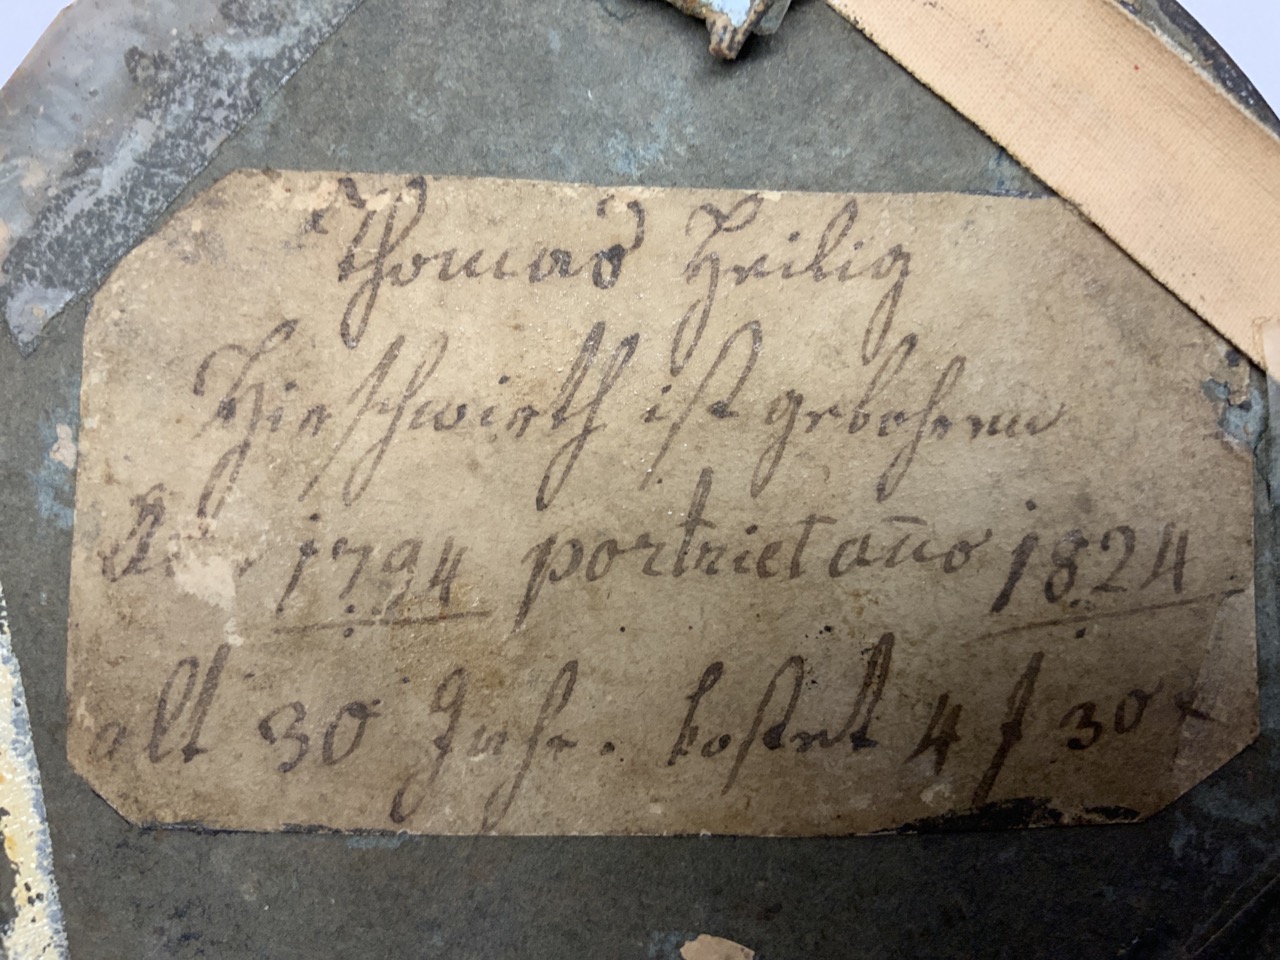 Thomas Heilig
Hirschwirth ist gebohrnn
1794 portriet año 1824
alt 30 Jahr. kostet 4 f 30 x